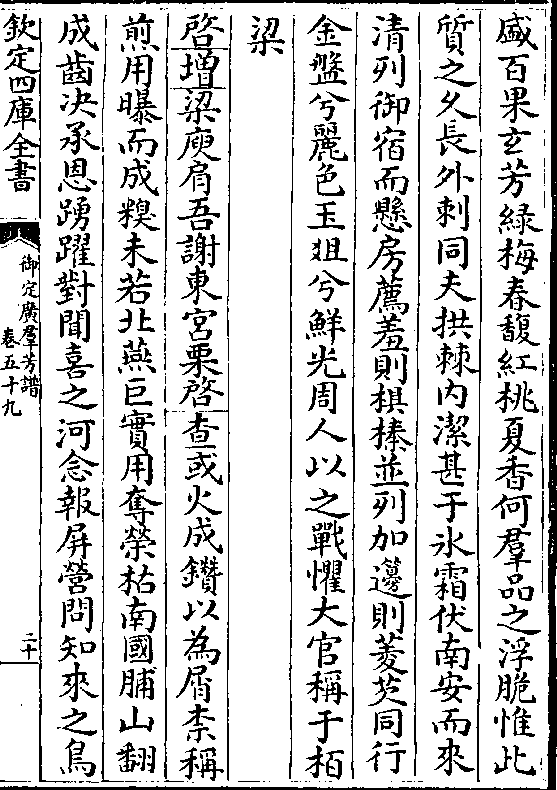 盛百果玄芳緑梅春馥紅桃夏香何羣品之浮脆惟此
質之久長外刺同夫拱棘内潔甚于氷霜伏南安而來
清列御宿而懸房薦羞則椇榛並列加籩則菱芡同行
金盤兮麗色玉俎兮鮮光周人以之戰懼大官稱于栢
梁
啓增梁庾肩吾謝東宮栗啓查或火成鑽以為屑柰稱
煎用曝而成糗未若北燕巨實用奪榮枯南國脯山翻
成齒决承恩踴躍對聞喜之河念報屏營問知來之鳥
欽定四庫全書
御定廣羣芳譜
卷五十九
二十